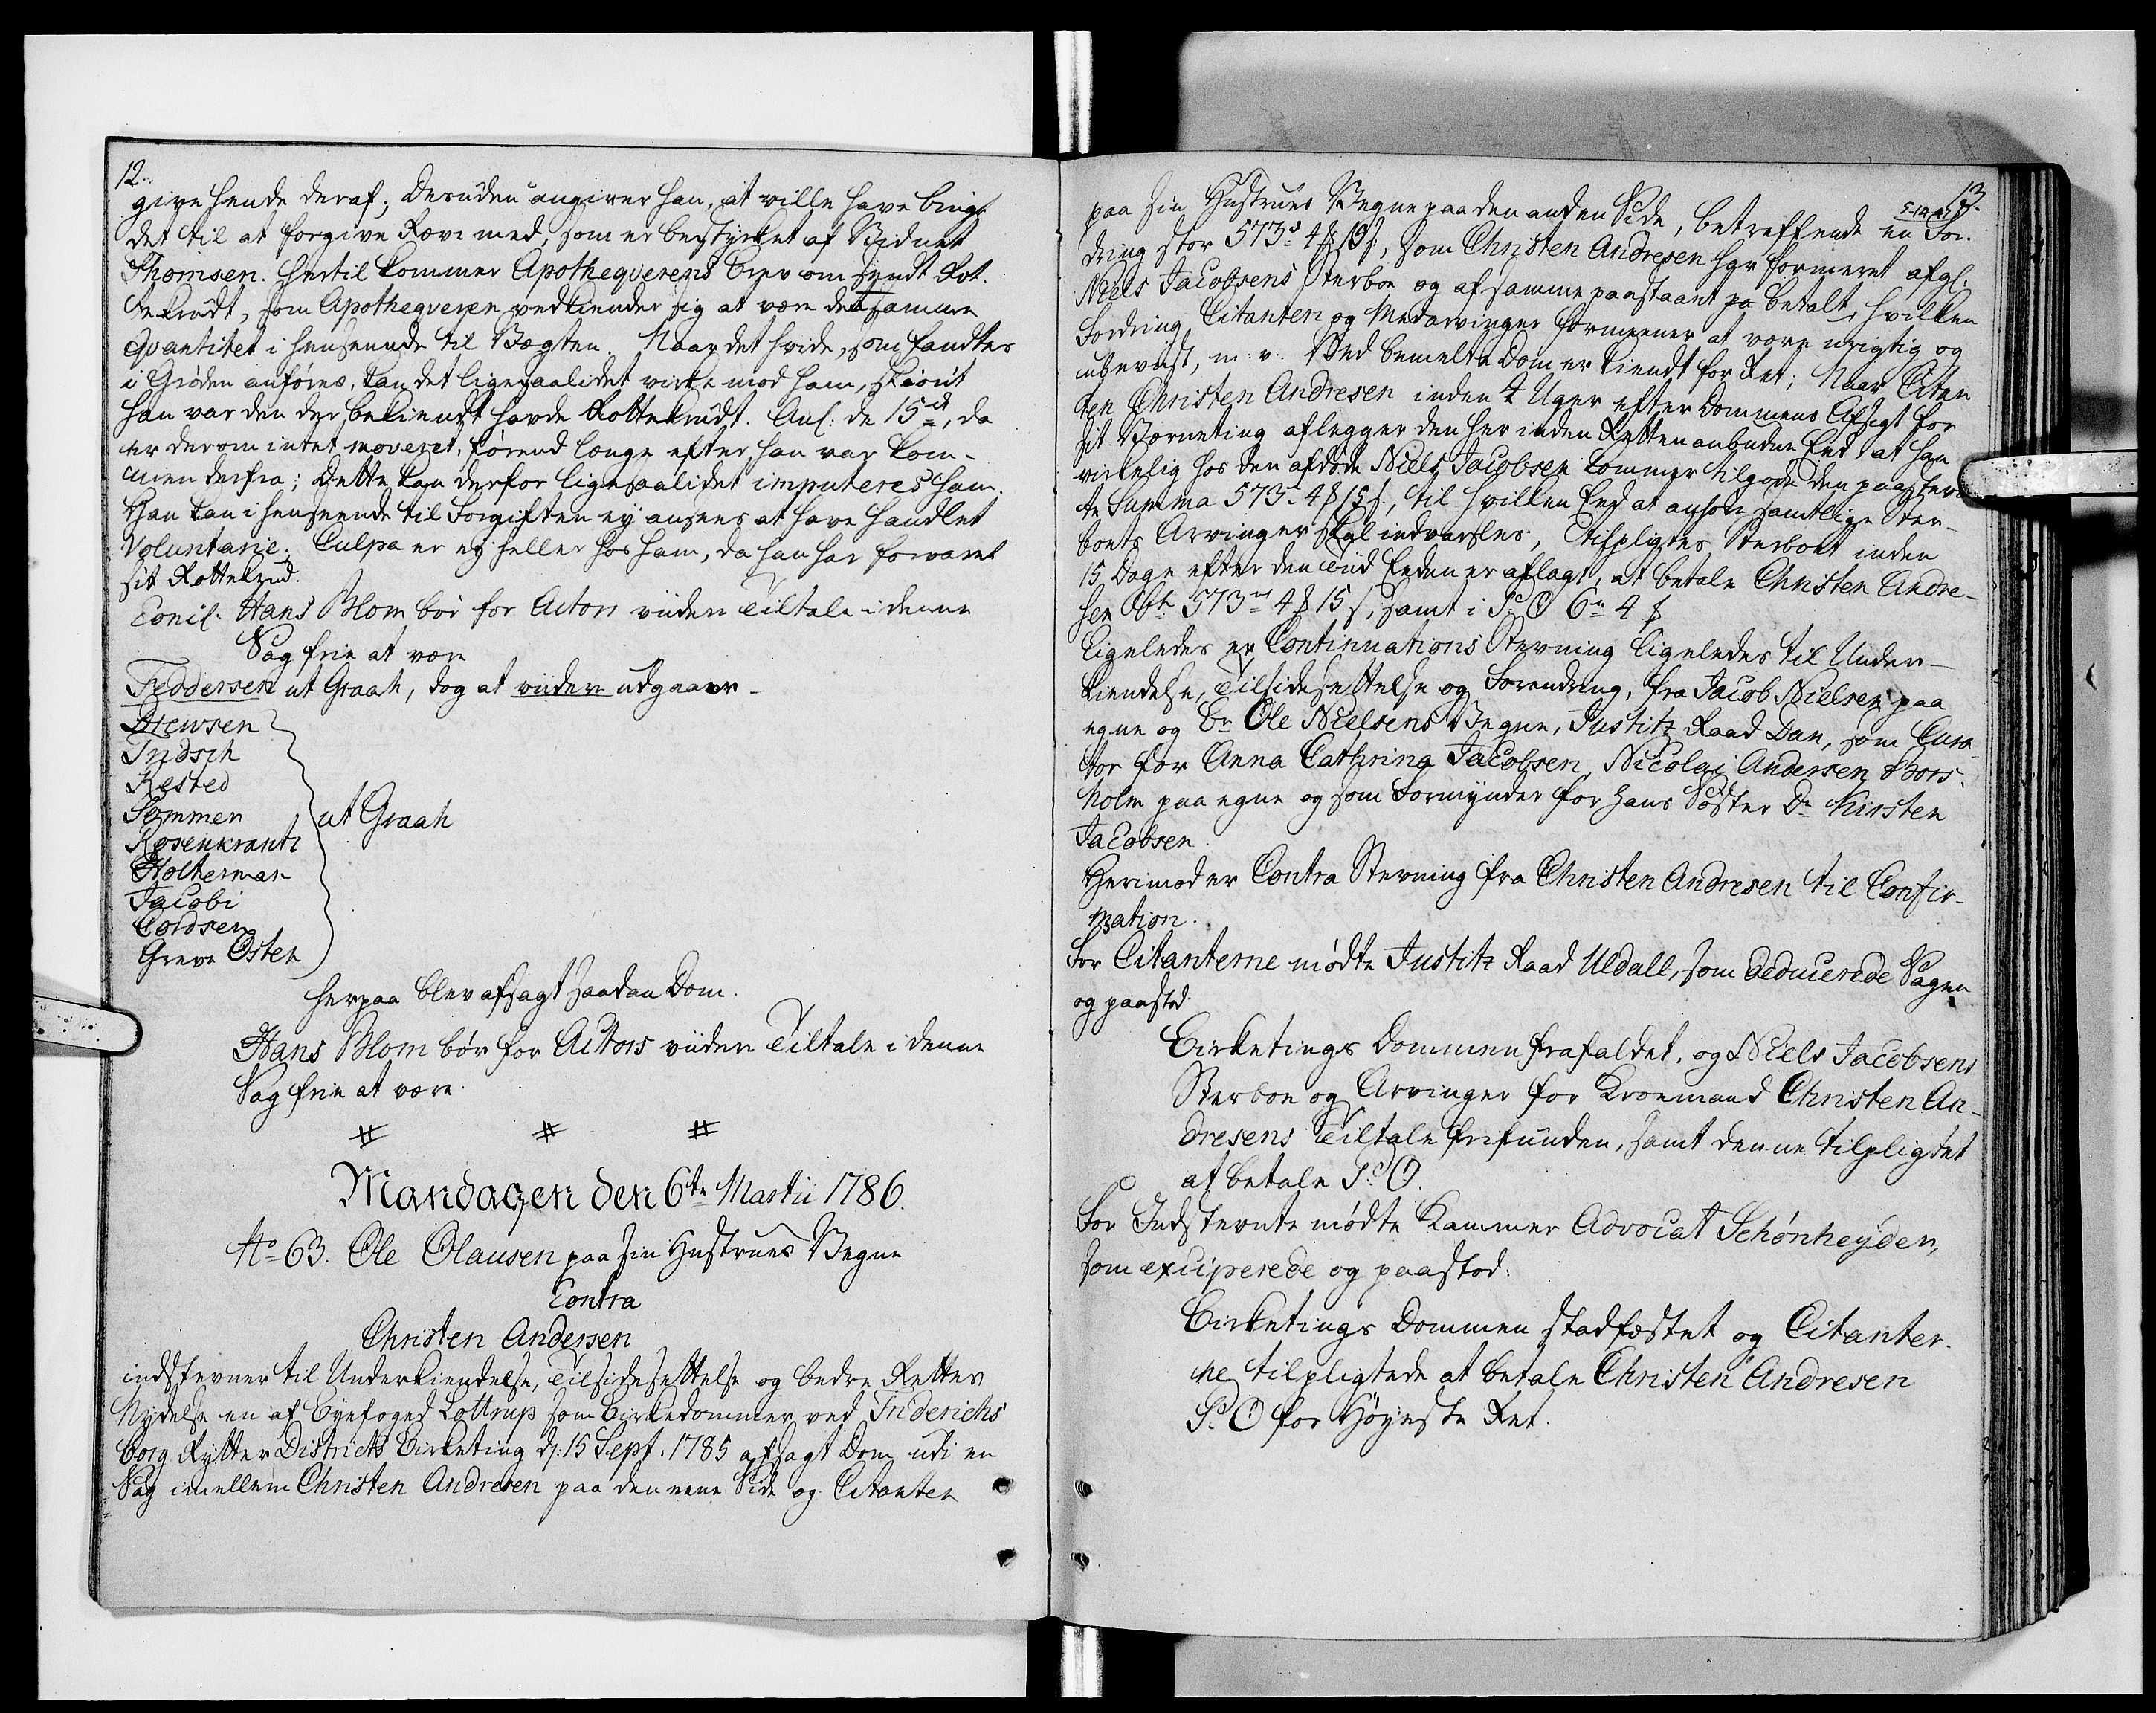 12.
give hende deraf; Desuden angiver han, at ville have brugt
det til at forgive Ræve med, som er bestyrket af Vidnet
Thomsen. Hertil kommer Apothequerens brev om sendt Rot-
tekrudt, som Apothequeren vedkiender sig at være det samme
Qvantitet i henseende til Vægten. Naar det hvide, som fandtes
i Grøden anføres, kan det ligesaalidet virke mod ham, skiønt
han var den der bekiendt havde Rottekrudt. Anl: de 15 rd, da
er derom intet moveret, førend længe efter, han var kom-
men derfra; Dette kan derfor ligesaalidet imputeres ham.
Han kan i henseende til Forgiften ey ansees at have handlet
Voluntarie. Culpa er ey heller hos ham, da han har forvaret
sit Rottekrud.
Concl. Hans Blom bør for Actors viidere Tiltale i denne
Sag frie at være
Feddersen ut Graah, dog at viidere udgaaer.
Drewsen
Tridsch
Kested
Sommer
Rosenkrantz
Holterman
Jacobi
Coldsen
Greve Osten
ut Graah
Herpaa blev afsagt saadan Dom.
Hans Blom bør for Actors viidere Tiltale i denne
Sag frie at være.
# # #
Mandagen den 6te Martii 1786.
No 63. Ole Olausen paa sin Hustrues Vegne
Contra
Christen Andersen
indstevner til Underkiendelse, Tilsidesettelse og bedre Rettes
Nydelse en af Byefoged Lottrup som Birkedommer ved Friderichs
borg Rytter Districts Birketing d: 15 Sept: 1785 afsagt Dom udi en
Sag imellem Christen Andresen paa den eene Side og Citanten
13.
paa sin Hustrues Vegne paa den anden Side, betreffende en For-
dring stor 573 rd 4 mk 15 s, som Christen Andresen har formeret afgl.
Niels Jacobsens Sterboe og af samme paastaaet betalt, hvilken
Fordring Citanten og Medarvinger formeener at være urigtig og
ubeviist, m: v: Ved bemelte Dom er kiendt for Ret; Naar Citan
ten Christen Andresen inden 4 Uger efter Dommens Afsigt for
sit Værneting aflegger den her inden Retten anbudne Eed at han
virkelig hos den afdøde Niels Jacobsen kommer tilgode den paastevn
te Summa 573 rd 4 mk 15 s, til hvilken Eed at anhøre samtlige Ster-
boets Arvinger skal indvarsles, tilpligtes Sterboet inden
15 Dage efter den Tiid Eeden er aflagt, at betale Christen Andre-
sen 573 rd 4 mk 15 s, samt i P: O 6 rd 4 mk
Ligeledes er Continuations Stevning ligeledes til Under-
kiendelse, Tilsidesettelse og Forandring, fra Jacob Nielsen paa
egne og Br Ole Nielsens Vegne, Justitz Raad Dan, som Cura
tor for Anna Cathrina Jacobsen, Nicolai Andersen Bors-
holm paa egne og som Formynder for hans Søster Dr Kirsten
Jacobsen.
Herimod er Contra Stevning fra Christen Andresen til Confir-
mation.
For Citanterne mødte Justitz Raad Uldall, som deducerede Sagen
og paastod:
Birketings Dommen frafaldet, og Niels Jacobsens
Sterboe og Arvinger for Kroemand Christen An-
dresens Tiltale frifunden, samt denne tilpligtet
at betale P: O.
For Indstevnte mødte Kammer Advocat Schønheyder,
som exciperede og paastod:
Birketings Dommen stadfæstet og Citanter-
ne tilpligtede at betale Christen Andresen
P: O for Høyeste Ret.